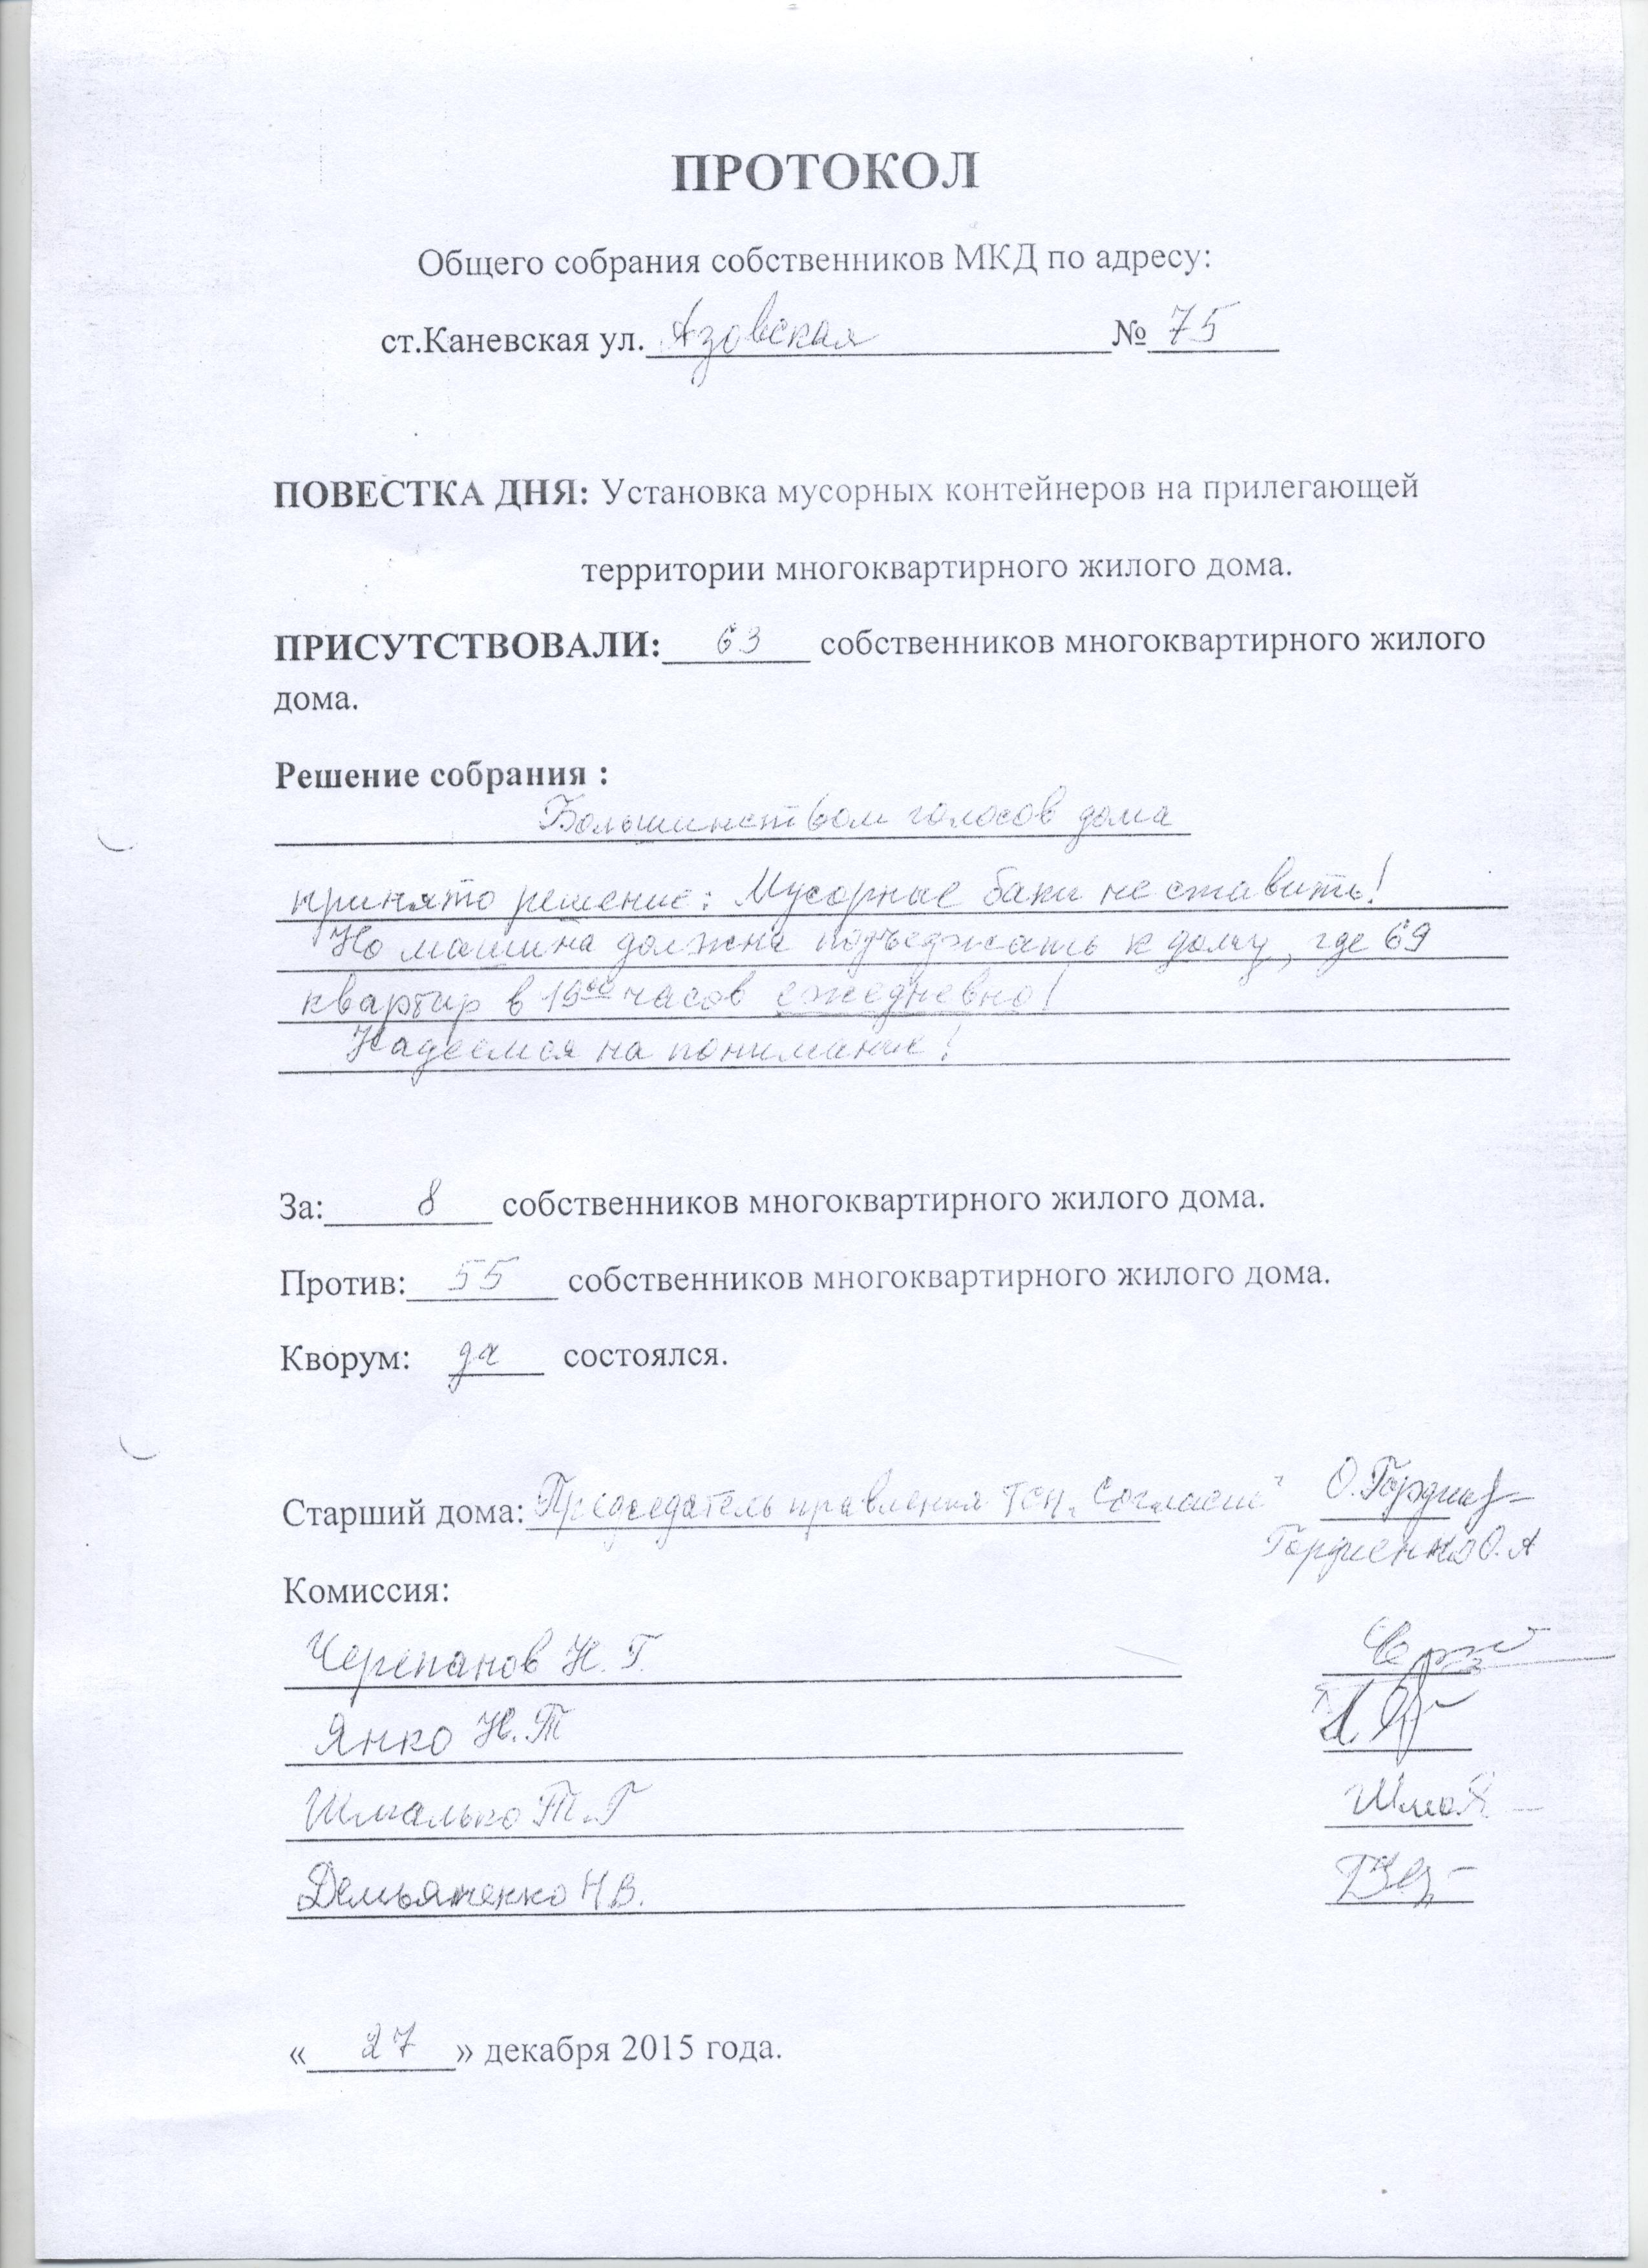 ПРОТОКОЛ
Общего собрания собственников МКД по адресу:
ст.Каневская ул. Азовская № 75
ПОВЕСТКА ДНЯ: Установка мусорных контейнеров на прилегающей
территории многоквартирного жилого дома.
ПРИСУТСТВОВАЛИ: 63 собственников многоквартирного жилого
дома.
Решение собрания :
Большинством голосов дома
принято решение: Мусорные баки не ставить!
Но машина должна подъезжать к дому, где 69
квартир в 19⁰⁰ часов ежедневно!
Надеемся на понимание!
За: 8 собственников многоквартирного жилого дома.
Против: 55 собственников многоквартирного жилого дома.
Кворум: да состоялся.
Старший дома: Председатель правления ТСН „Согласие"
Гордиенко О.А
Комиссия:
Черепанов Н. Г.
Янко Н. Т
Шмалько Т. Г
Демьяненко Н.В.
« 27 » декабря 2015 года.